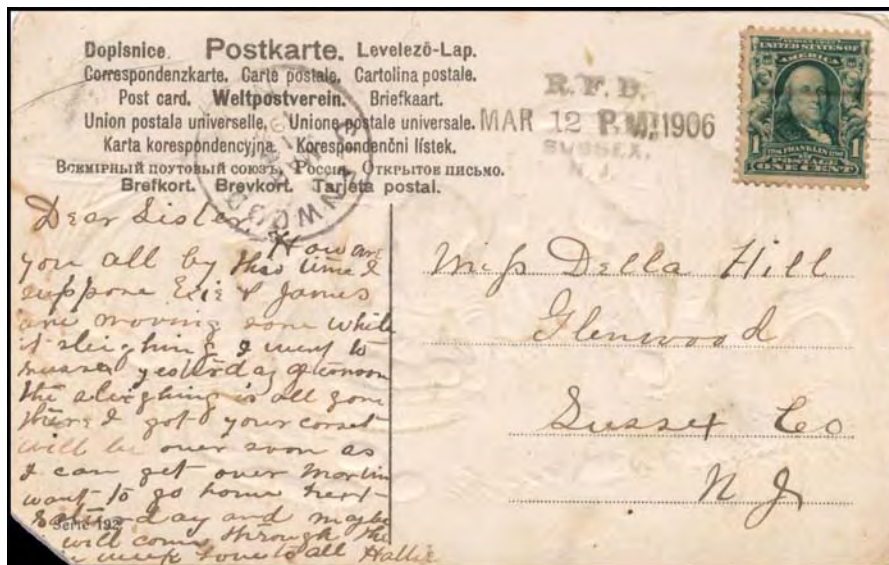 Dopisnice. Postkarte. Levelező-Lap.
Correspondenzkarte. Carte postale. Cartolina postale.
Post card. Weltpostverein. Briefkaart.
Union postale universelle. Unione postale universale.
Karta korespondencyjna. Korespondenční lístek.
Всемірный почтовый союзъ. Россія. Открытое письмо.
Brefkort. Brevkort. Tarjeta postal.
R.F.D.
MAR 12 P.M. 1906
SUSSEX,
N.J.
UNITED STATES OF
AMERICA
FRANKLIN
POSTAGE
1 ONE CENT 1
Dear Sister, How are
you all by this time I
suppose & James
are moving some while
it sleighing I went to
Sussex yesterday afternoon
the sleighing is all gone
there I got your corset
will be over soon as
I can get over Martin
want to go home next
day and maybe
will come through the
love to all Hallie
Serie 192
Miss Della Hill
Glenwood
Sussex Co
N J